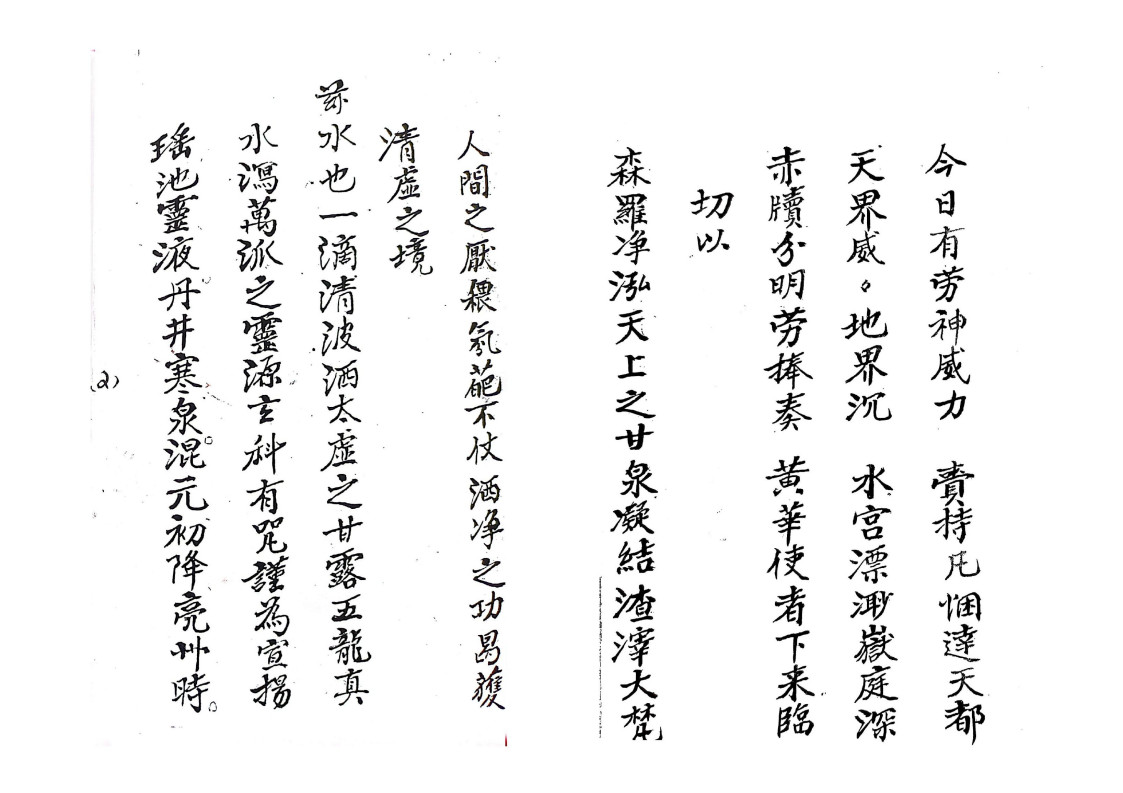 今日有劳神威力　賫持凡悃達天都
天界威〻地界沉　水宫漂渺嶽庭深
赤牘分明劳捧奏　黄華使者下来臨
切以
森羅净泓天上之甘泉凝結渣滓大梵
人間之厭穢氛葩不仗洒净之功曷獲
清虚之境
兹水也一滴清波洒太虚之甘露五龍真
水瀉萬派之靈源玄科有咒謹為宣揚
瑶池靈液丹井寒泉。混元初降亮艸時。
(2)